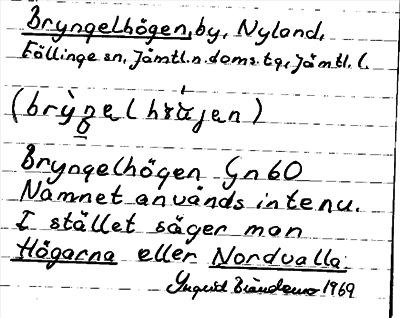 Bryngelhögen, by, Nyland,
Föllinge sn, Jämtl.n.doms.tg, Jämtl. l.
Bryngelhögen Gn 60
Namnet används inte nu.
I stället säger man
Högarna eller Nordvalla.
Ingrid 1969